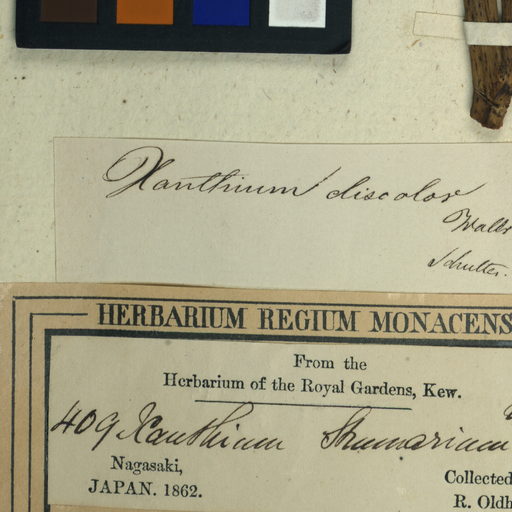 Xanthium discolor
Wallr
Schultes.
HERBARIUM REGIUM MONACENS
From the
Herbarium of the Royal Gardens, Kew.
409 Xanthium Strumarium
Nagasaki,
JAPAN. 1862.
Collected
R. Oldh